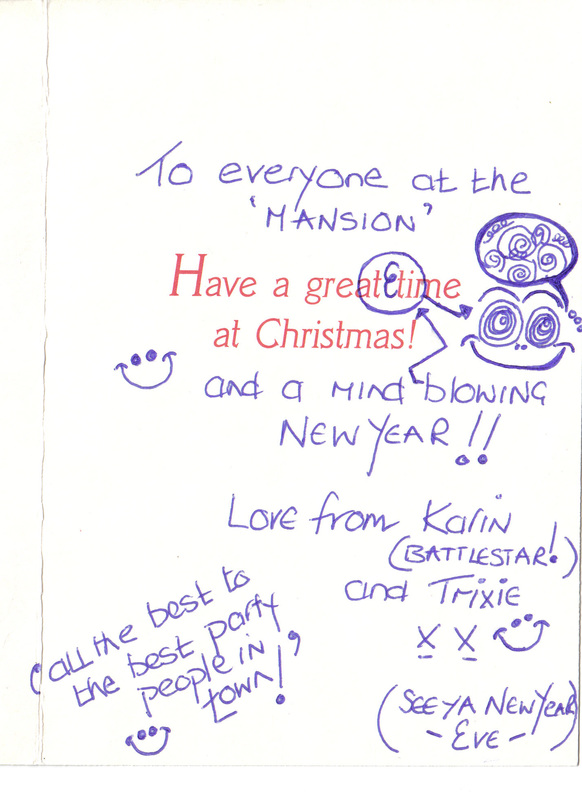 To everyone at the
'MANSION'
Have a great E time
at Christmas!
and a MIND blowing
NEW YEAR!!
Love from Karin
(BATTLESTAR!)
and Trixie
x x
(SEE YA NEW YEAR
- EVE -)
'all the best to
the best party
people in
town!'